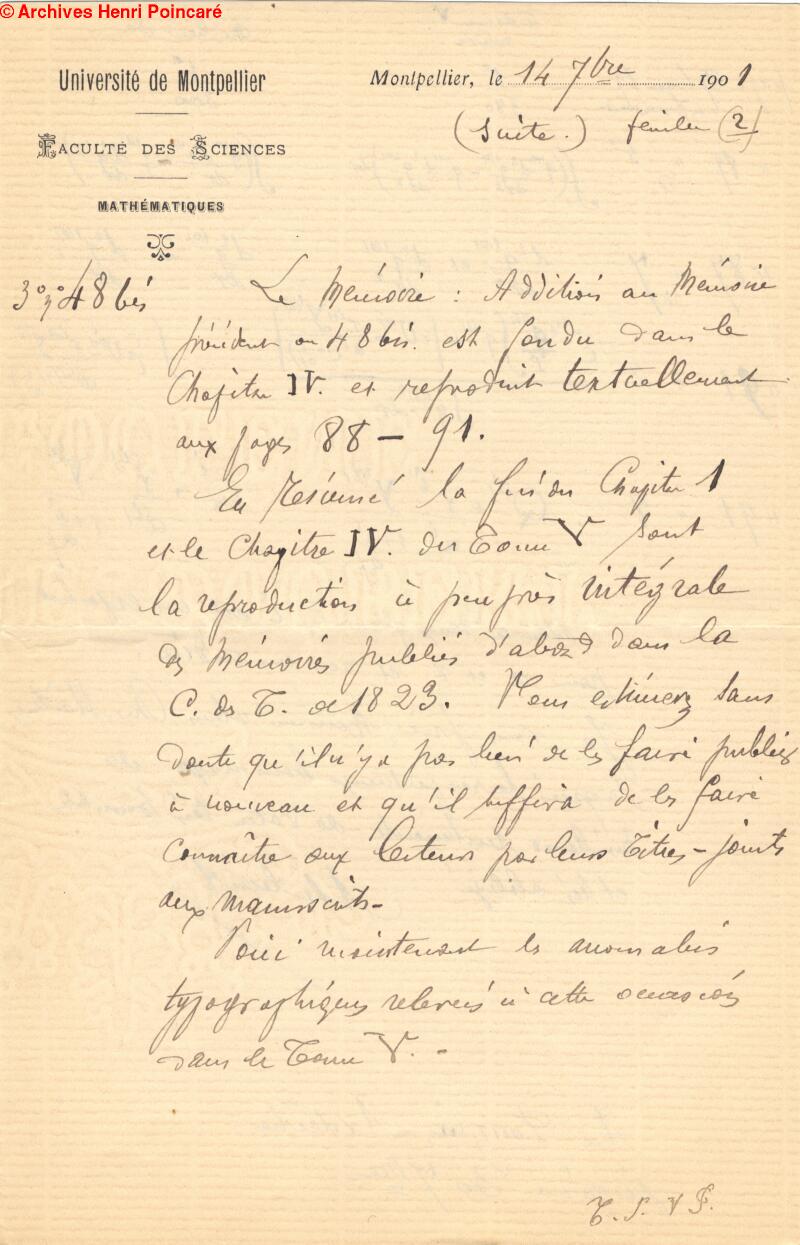 © Archives Henri Poincaré
Université de Montpellier
Montpellier, le 14 7bre 1901
(Suite.) feuillet (2)
FACULTÉ DES SCIENCES
MATHÉMATIQUES
3° n° 48 bis Le Mémoire : Addition au Mémoire
précédent ou 48 bis. est fondu dans le
Chapitre IV. et reproduit textuellement
aux pages 88 – 91.
En résumé la fin du Chapitre 1
et le Chapitre IV. du Tome V sont
la reproduction à peu près intégrale
des Mémoires publiés d'abord dans la
C. des T. de 1823. Vous estimerez sans
doute qu'il n'y a pas lieu de les faire publier
à nouveau et qu'il suffira de les faire
connaître aux lecteurs par leurs titres – joints
aux manuscrits –
Voici maintenant les anomalies
typographiques relevées à cette occasion
dans le Tome V. –
T. S. V P.